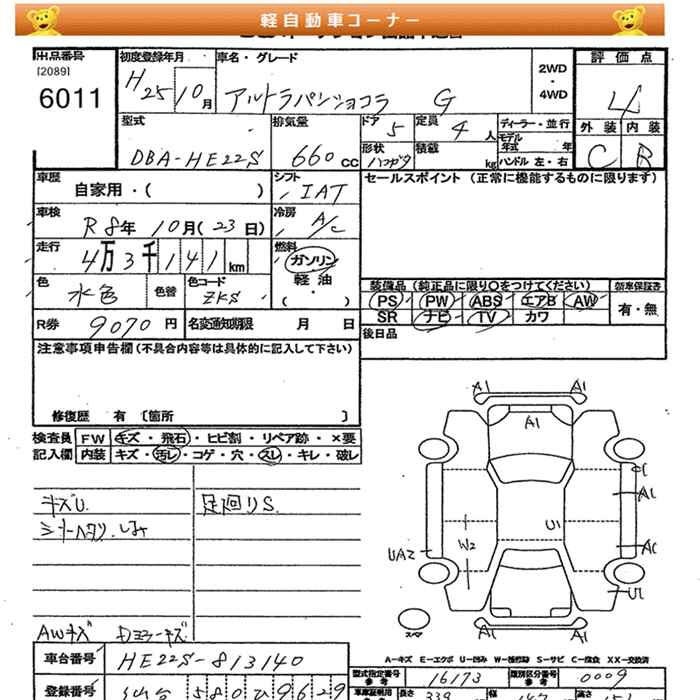 軽自動車コーナー
出品番号
[2089]
6011
初度登録年月
H25 10月
車名・グレード
アルトラパンショコラ G
2WD
・
4WD
評価点
4
外装 内装
C B
型式
DBA-HE22S
排気量
660cc
ドア
5
定員
4人
形状
ハコガタ
積載
kg
ディーラー・並行
モデル
年式 年
ハンドル 左・右
車歴
自家用・( )
シフト
IAT
セールスポイント (正常に機能するものに限ります)
車検
R8年 10月(23日)
冷房
A/C
走行
4万3千141km
燃料
ガソリン
軽油
( ・ )
色
水色
色替
色コード
ZKS
装備品 (純正品に限り○をつけてください)
新車保証書
PS PW ABS エアB AW
SR ナビ TV カワ
有・無
R券 9070円
名変通知期限 月 日
後日品
注意事項申告欄 (不具合内容等は具体的に記入して下さい)
修復歴 有 〔箇所 〕
検査員
記入欄
FW キズ・飛石・ヒビ割・リペア跡・×要
内装 キズ・汚レ・コゲ・穴・スレ・キレ・破レ
キズU
シートヘタリ.シミ
足廻りS.
AWキズ ドミラーキズ
A1 A1
A1
C
A1
U1
W2
UA2
A1
U1
スペア
A1 A1
A-キズ E-エクボ U-凹み W-補修跡 S-サビ C-腐食 XX-交換済
車台番号
HE22S-813140
型式指定番号
参考
16173
類別区分番号
参考
0009
登録番号
仙台 580 ひ 9629
長さ
339
幅
147
高さ